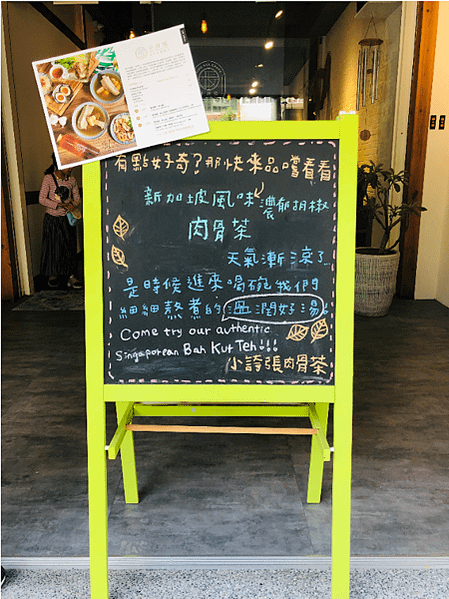 有點好奇？那快來品嚐看看
新加坡風味濃郁胡椒
肉骨茶
天氣漸涼了
是時候進來喝碗我們
細細熬煮的溫潤好湯。
Come try our authentic
Singaporean Bah Kut Teh!!!
小誇張肉骨茶